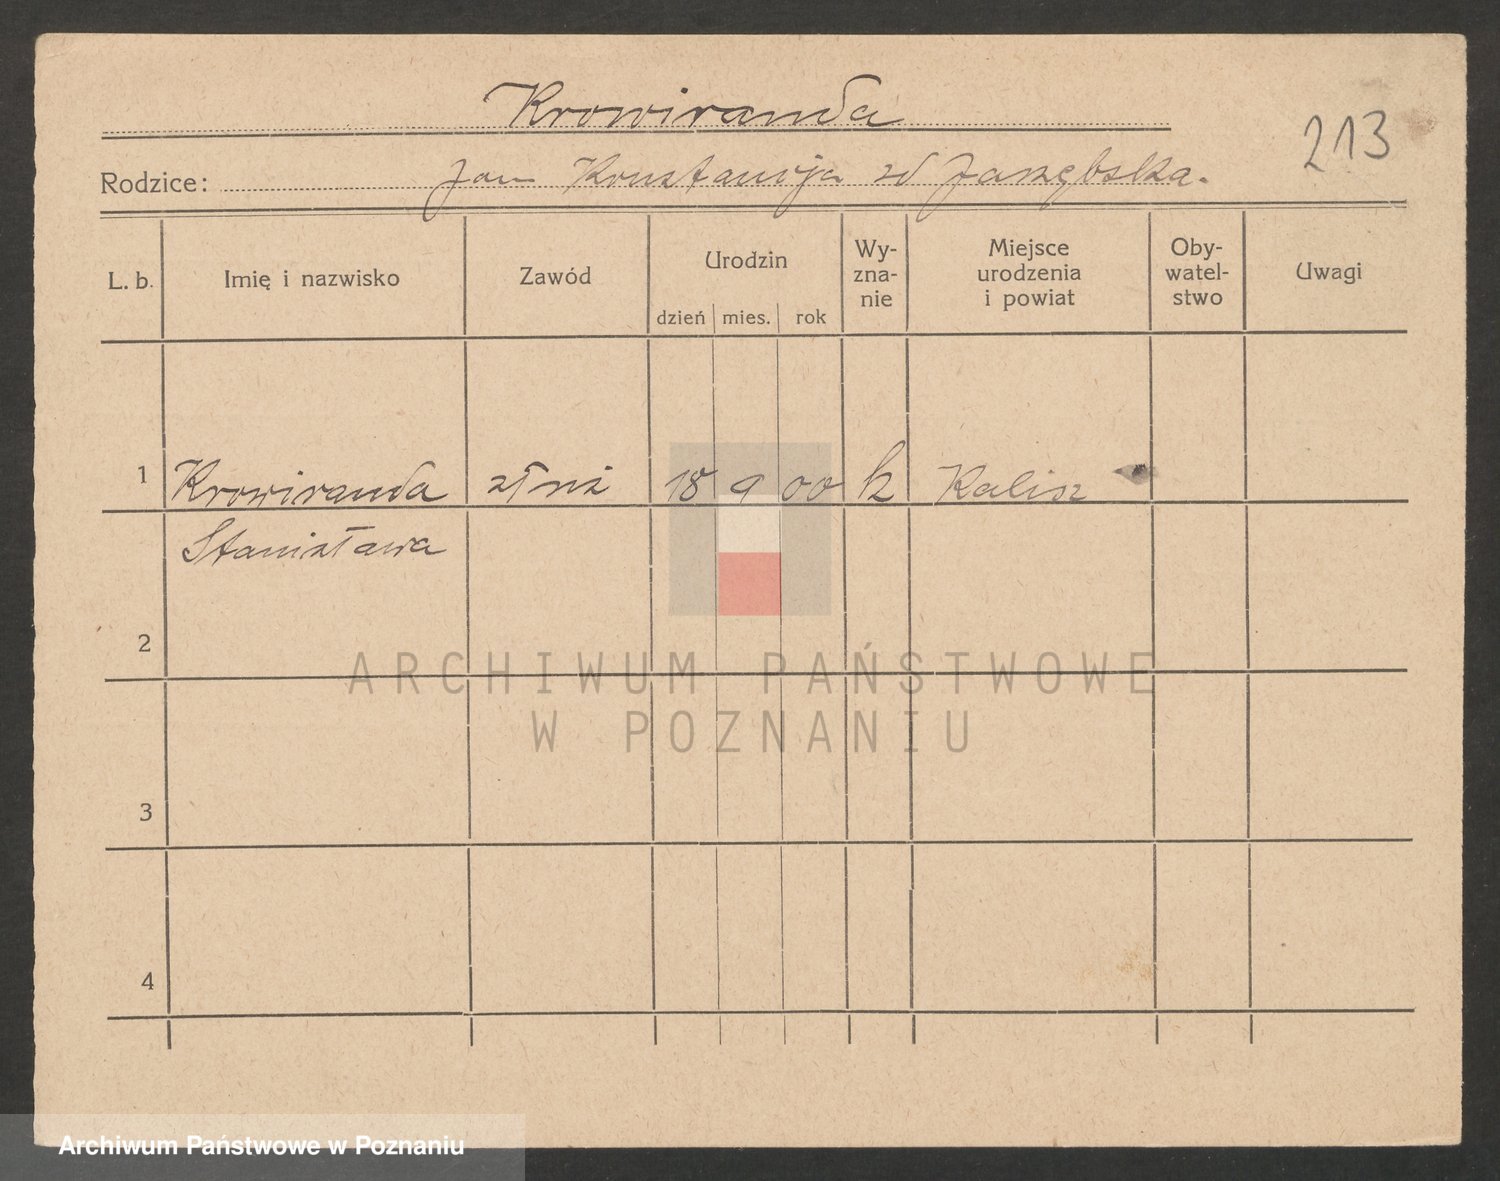 Krowiranda
213
Rodzice: Jan Konstancja zd Jarzębska.
L. b. Imię i nazwisko Zawód Urodzin dzień mies. rok Wy-zna-nie Miejsce urodzenia i powiat Oby-watel-stwo Uwagi
1 Krowiranda 18 9 00 k Kalisz
Stanisława
2
3
4
ARCHIWUM PAŃSTWOWE
W POZNANIU
Archiwum Państwowe w Poznaniu